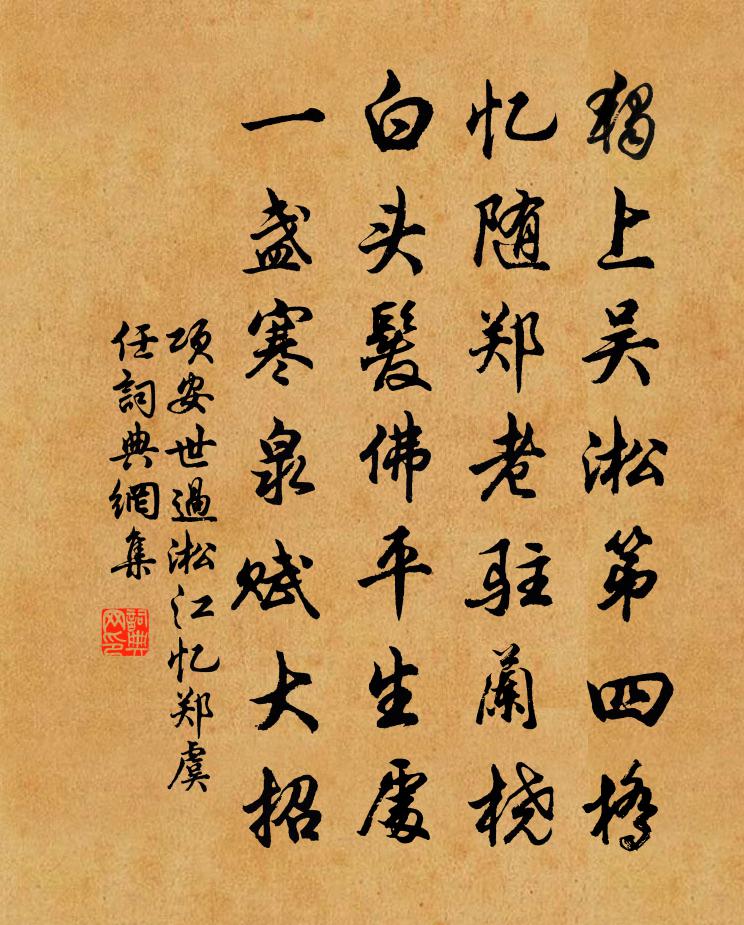 獨上吴淞第四橋
忆随郑老驻蘭桡
白头髮佛平生處
一盏寒泉赋大招
项安世過淞江忆郑虞
任詞典網集
詞典網印